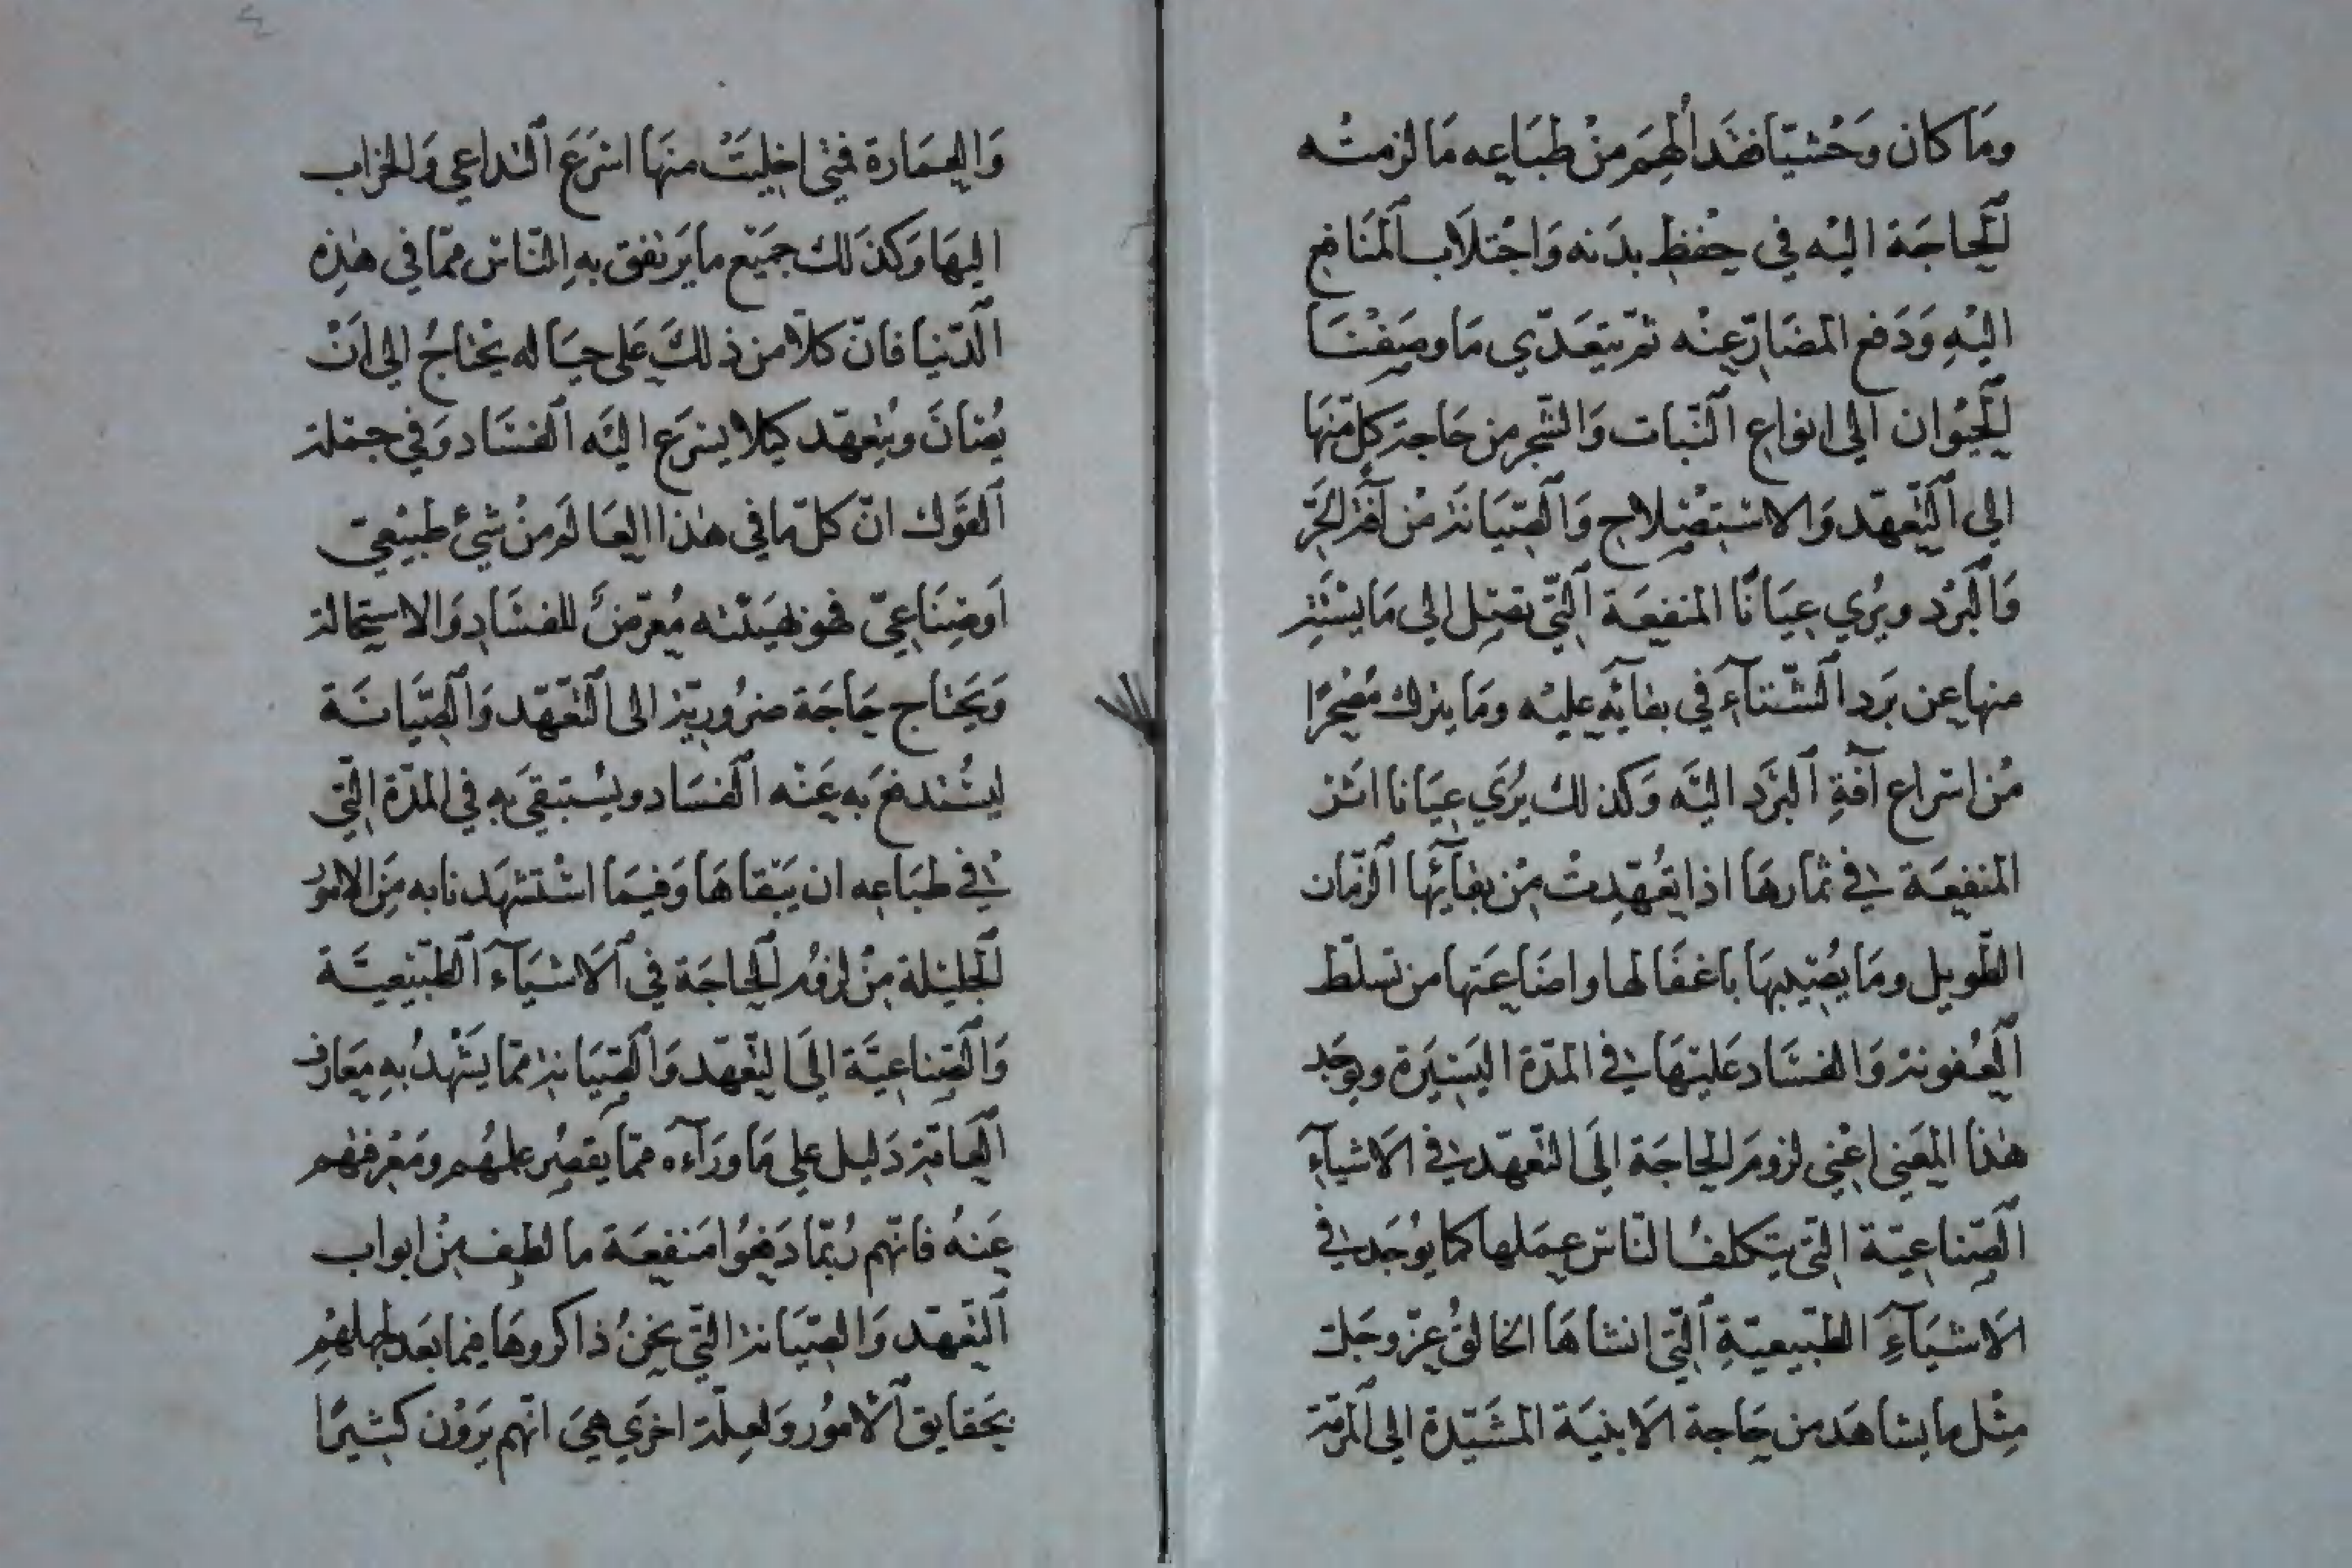 وَمَا كان وَحْشيّا فقَد أُلهِمَ مِنْ طبَاعِه مَا لزمتْه
الْحاجَة اليْه في حِفظِ بدَنه وَاجْتلَاب الْمَنَافع
اليْهِ وَدَفع المضَارّ عِنْه ثمّ يتعَدّي مَا وصَفْنَا
الْحيَوان الي انواع النّبات وَالشّجر من حَاجة كلّ منهَا
الي التّعهّد وَالاسْتصْلاح وَالصِّيَانة مْن آفة الحَرّ
وَالْبَرْد ويرُي عيَانًا المنفعَة الّتي تصل الي مَا يسْتَر
منها عن بَرد الشّتآءِ في بقآئِه عليْه ومَا يترك مُصْحرًا
مْن اسْراع آفةِ البَرْد اليَه وَكذلك يُرَي عيَانا اثر
المنفعَة في ثمارهَا اذا تعُهّدتْ مِنْ بقآئِها الزّمان
الطّويل ومَا يُصيبهَا باغفَالها واضَاعَتها من تسلّط
الْعُفونة وَالفسَاد عَليْهَا في المدّة اليَسيْرَة ويوجَد
هٰذا المعَني اعْني لزومَ الحاجَة الَي التّعهّد في الاَشيآءِ
الصّناعيّة الّتي يتكلفُ النّاس عمَلها كما يُوجَد في
الاَشيَآءِ الطّبيعيّةِ الّتي انشاهَا الخالقُ عزّ وجَلّ
مثْل ما يشاهَد من حَاجة الاَبنيَة المشَيّدة الي المرَمّة
وَالعمَارة فمتٰي اخليَتْ منهَا اسْرَعَ التداعي وَالخرَاب
اليهَا وَكذَلك جمَيْع ما يَرتفق بهِ النّاس ممّا في هٰذِه
الدّنيا فانّ كلّا من ذلكَ عَلي حيَاله يحْتاجُ الي اَنْ
يُصَانَ ويُتعهّد كيلا يسْرَع اليَه الفسَاد وَفي جمْلة
القَول انّ كلّ ما في هٰذا العَالَم مِنْ شيْءٍ طبيْعيّ
اَو صِنَاعيّ فهو بهيَئته مُعرّضٌ للفسَادِ وَالاستحالة
وَيَحْتاج حَاجَة ضرُوريّة الى التّعَهّد وَالصّيَانَة
ليسْتدفعَ به عَنْه الفسَاد ويسُتبقيَ بهِ في المدّة الّتي
في طبَاعِه ان يَبْقاهَا وَفيمَا اسْتشهَدنا به مِنَ الامُور
الْجليْلة مِنْ لزوُم الحاجَة في الاَشيَآء الطّبيْعيَّة
وَالصّنِاعيَّة الَي التّعَهّد وَالصّيَانة ممّا يَشْهدُ بهِ مَعَارف
العَامّة دَليل علي مَا وَرَآءَه ممّا يقصُر علمهُم ومَعْرفتهُم
عَنهُ فانّهم رُبّما دَفعُوا مَنفعَة ما لطف مِنْ ابواب
التّعَهّد وَالصّيَانة الّتي نحْنُ ذاكروهَا فيما بَعَد لجهلهُم
بحَقايق الْامُور وَلعلّة اخرَي هيَ انّهم يرَوْن كثيْرًا